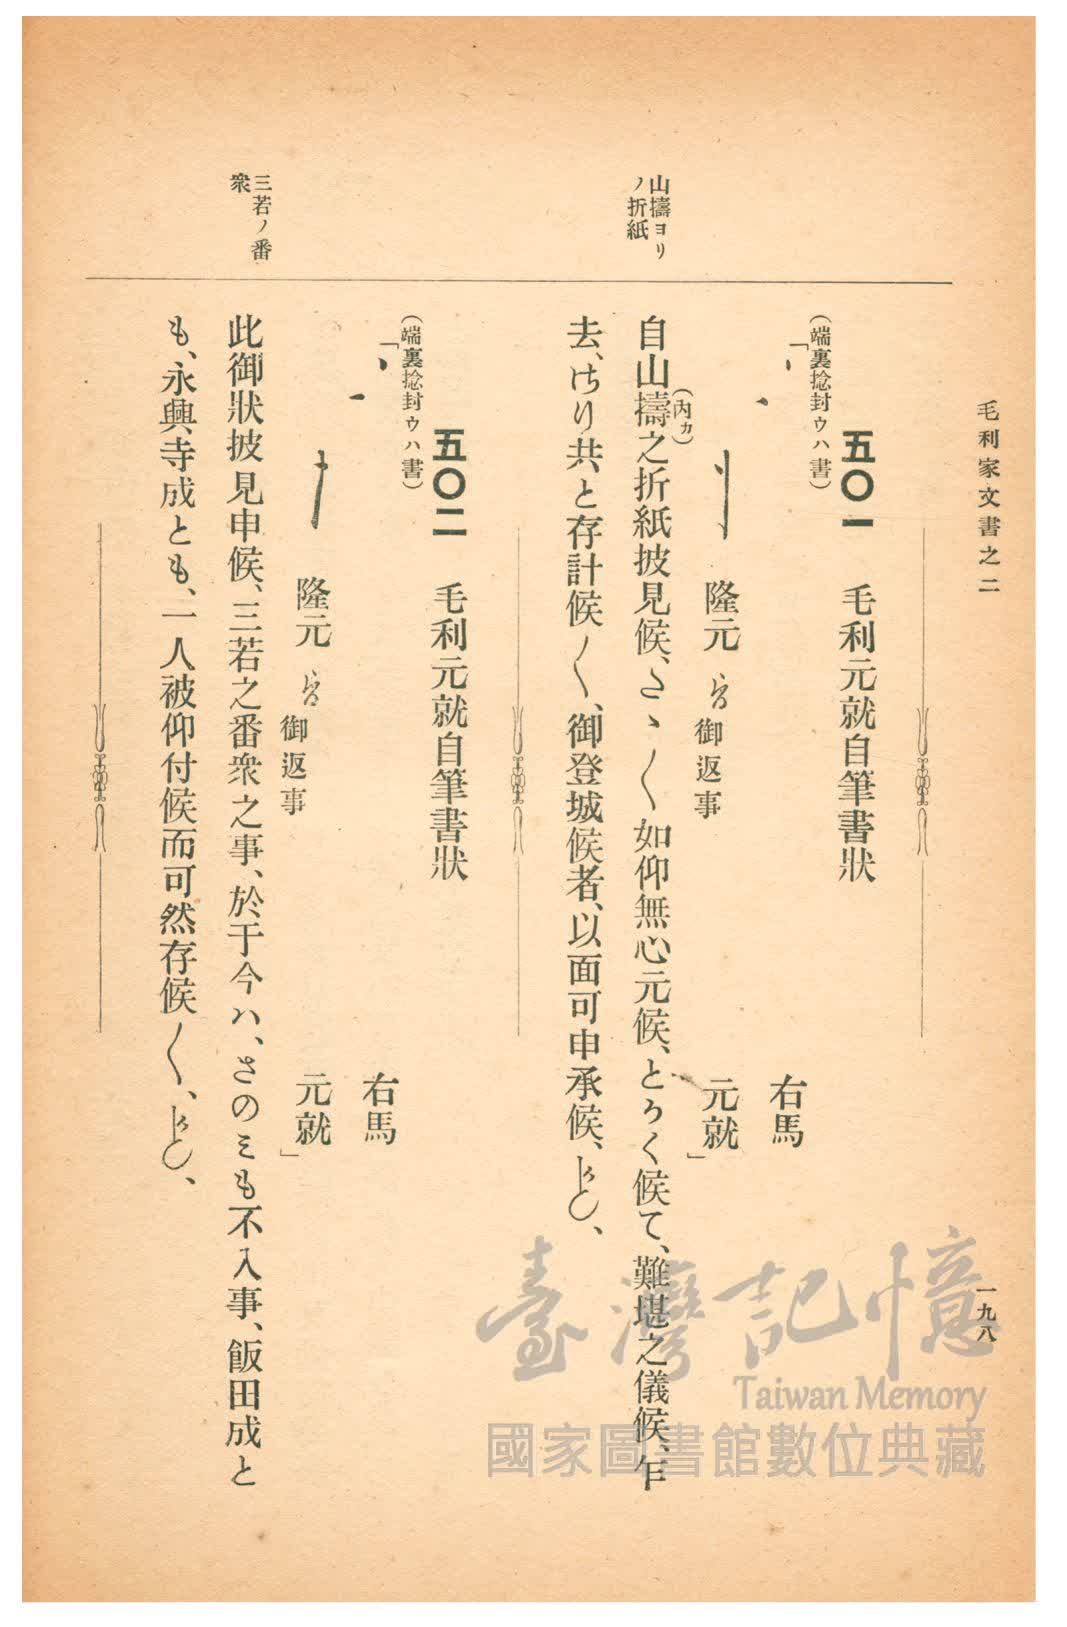 毛利家文書之二
一九八
五〇一 毛利元就自筆書狀
(端裏捻封ウハ書)
「
右馬
隆元 御返事
元就」
山擣ヨリノ折紙
(内カ)
自山擣之折紙披見候、さゝ〱如仰無心元候、とかく候て、難堪之儀候、乍
去、はかり共と存計候〱、御登城候者、以面可申承候、
五〇二 毛利元就自筆書狀
(端裏捻封ウハ書)
「
右馬
隆元 御返事
元就」
三若ノ番衆
此御狀披見申候、三若之番衆之事、於于今ハ、さのミも不入事、飯田成と
も、永興寺成とも、一人被仰付候而可然存候〱、
臺灣記憶
Taiwan Memory
國家圖書館數位典藏